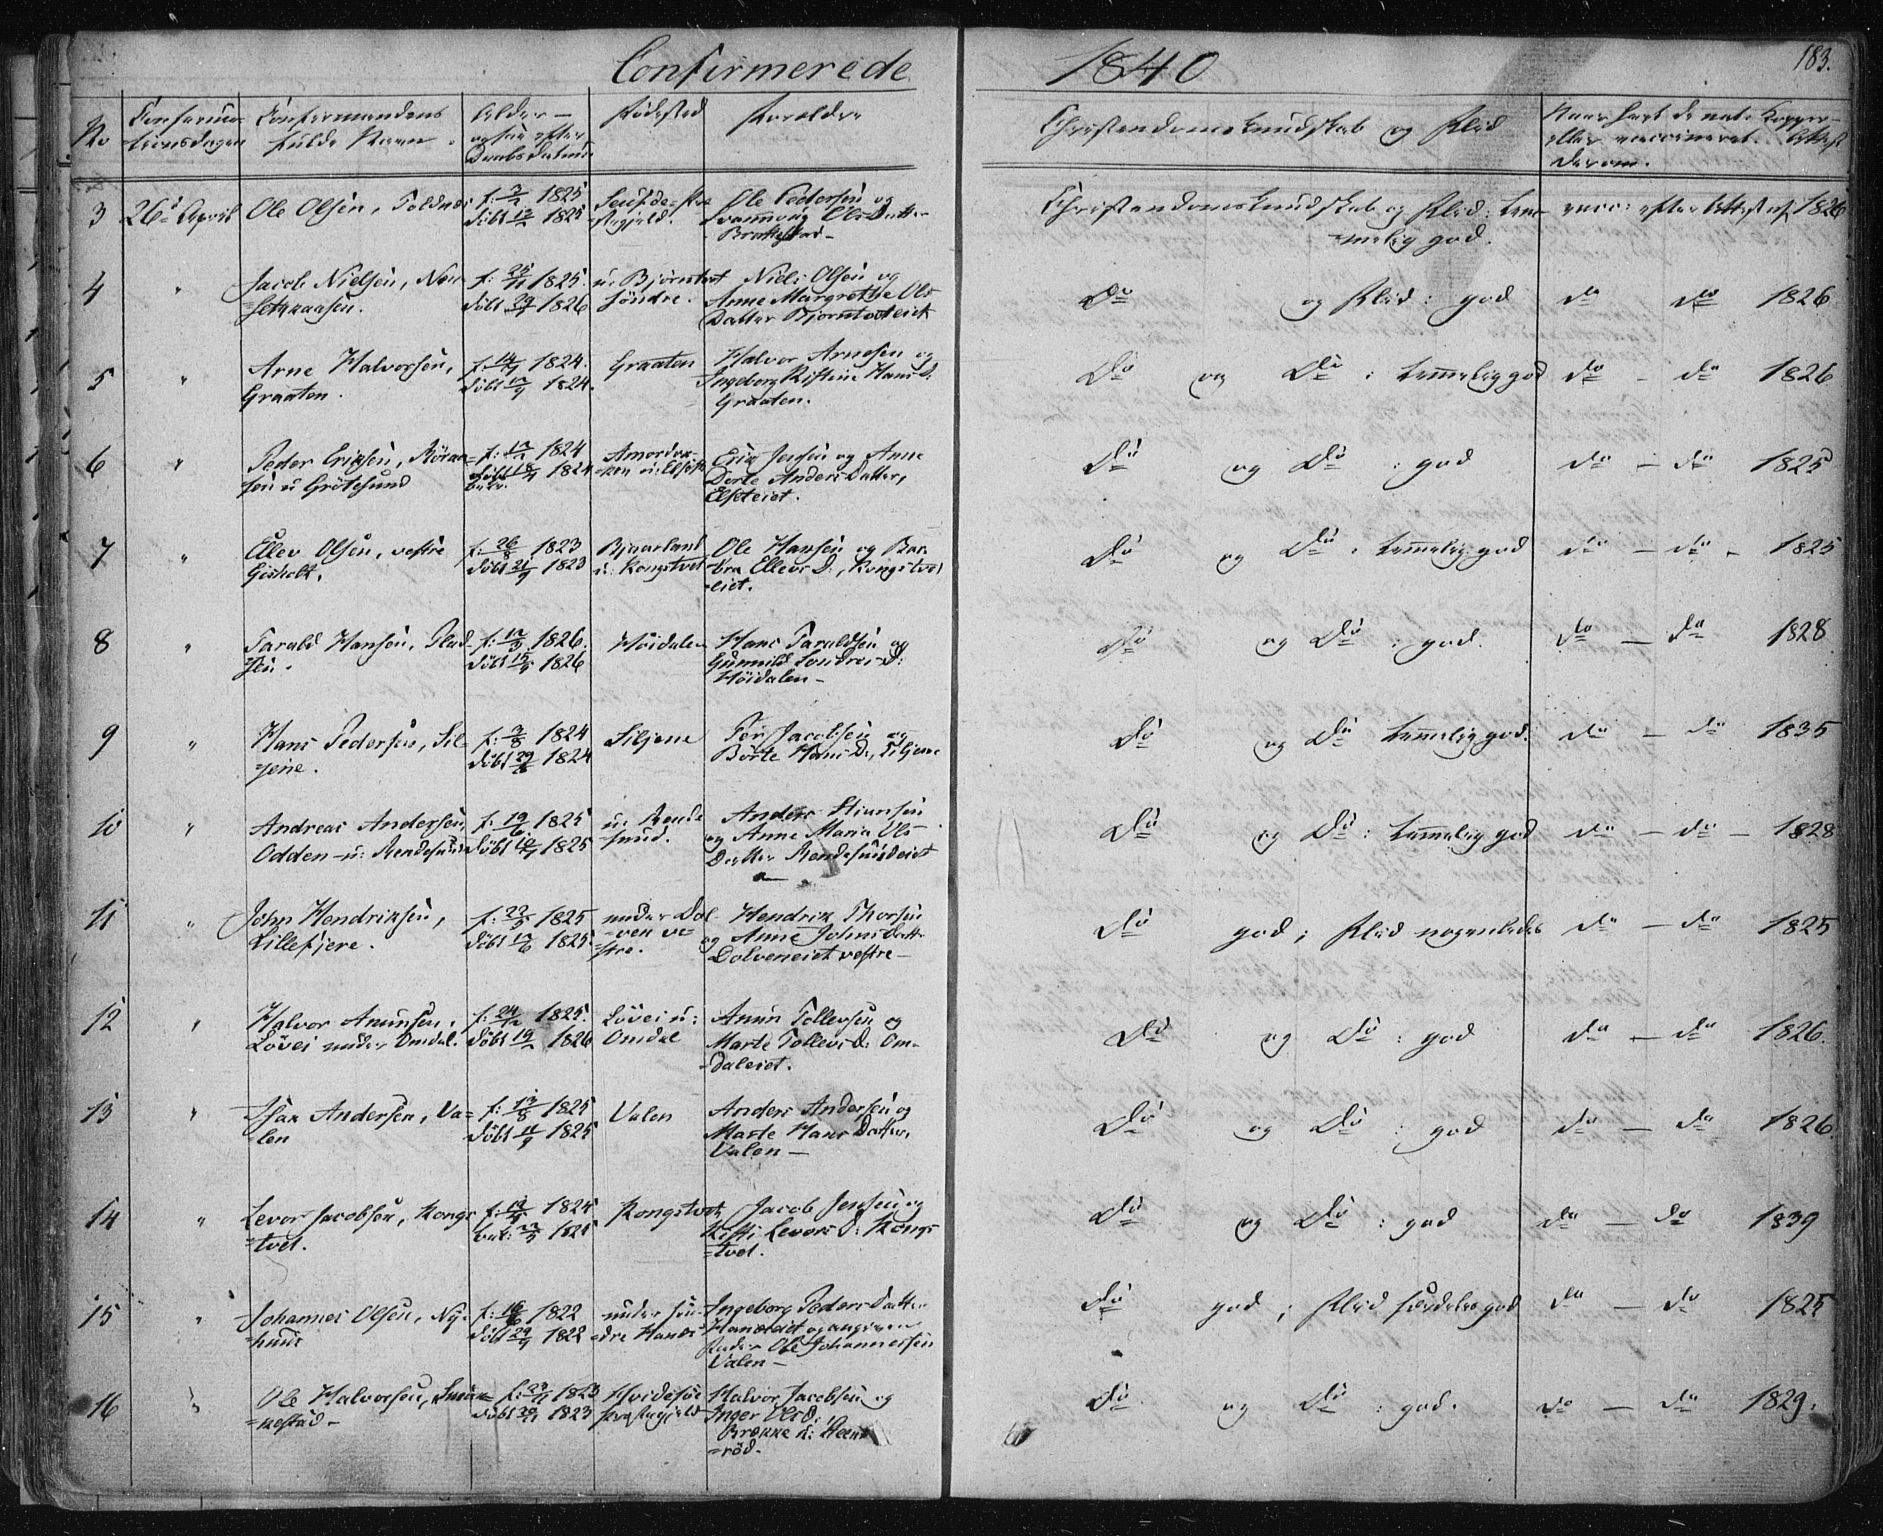 Confirmerede 1840 183.
No
Confirma-
tionsdagen
Confirmandens
fulde Navn.
Alder –
ogsaa efter
Daabsdatum
Födested
Forældre
Christendomskundskab og Flid
Naar havt de nat. Kopper
eller vaccineret. Attest
derom.
3 26de April Ole Olsen,
f: 3/1 1825
döbt 13/2 1825
Ole Pedersen og
Ols Datter
Christendomskundskab og Flid: tem-
melig god.
vacc: efter Attest af 1826
4 " Jacob Nielsen,
f: 25/11 1825.
döbt 29/1 1826
u. Bjørntvet
söndre.
Niels Olsen og
Anne Margrethe Ols
Datter Bjørntvedteiet
Do og Flid: god do do 1826
5 " Arne Halvorsen,
Graaten.
1824.
1824.
Graaten
Halvor Arnesen og
Ingeborg Kistine Hans D:
Graaten.
Do og Do: temmelig god do – do 1826
6 " Peder Eriksen,
u Grötesund
1824
1824
Erik Jensen og Anne
Dorte Anders Datter,
Elseteiet.
Do og Do: god do – do 1825
7 " Ellev Olsen, vestre
Gisholt.
f: 26/8 1823
döbt 21/9 1823
Bjaarland
u: Kongstvet
Ole Hansen og Bar-
bra Ellevs D:, Kongstvet
eiet.
Do og Do: temmelig god do – do – 1825
8 " Tarald Hansen,
f: 12/3 1826.
1826
Höidalen
Hans Taraldsen og
Gunnild D:
Höidalen –
Do og Do: god. do – do 1828
9 " Hans Pedersen, Sil-
jene.
f: 3/8 1824
döbt 29/8 1824
Siljene
Per Jacobsen og
Börte Hans D:, Siljene
Do og Do temmelig god. do – do 1835
10 " Andreas Andersen,
Odden u: Rendesund
f: 19/6 1825
döbt 10/7 1825
u: Rende
sund.
Anders
og Anne Maria Ols-
Datter Rendesundeiet
Do og Do: temmelig god do – do – 1828
11 " John Hendriksen,
Lillefjere.
f: 22/5 1825
döbt 12/6 1825.
under Dol-
ven ve-
stre.
Hendrik Thorsen
og Anne Johns Datter
Dolveneiet vestre –
Do god; Flid nogenledes do – do 1825
12 " Halvor Amunsen,
Lövei under Omdal.
f: 24/12 1825.
döbt 19/2 1826
Lövei u:
Omdal
Amun Tollevsen og
Marte Tollevs D: Om-
daleiet.
Do og Do: god do – do 1826.
13 " Isak Andersen, Va-
len
f: 13/8 1825
döbt 11/9 1825
Valen
Anders Andersen og
Marte Hans Datter,
Valen –
Do og Do: god do – do 1826.
14 " Levor Jacobsen, Kongs
tvet.
1825
1825
Kongstvet
Jacob Jensen og
Kisti Levors D: Kongs
tvet.
Do og Do: god do – do 1839
15 " Johannes Olsen, Ny-
huus
1822
1822
under
Ingeborg Peders Datter
og angiven
Fader Ole Johannessen
Valen –
Do god; Flid særdeles god do – do 1825
16 " Ole Halvorsen,
1823
1823
Hvidesöe
Præstegjeld
Halvor Jacobsen og
Inger Ols D:
Brække u:
röd.
Do og Do: god. do – do 1829.